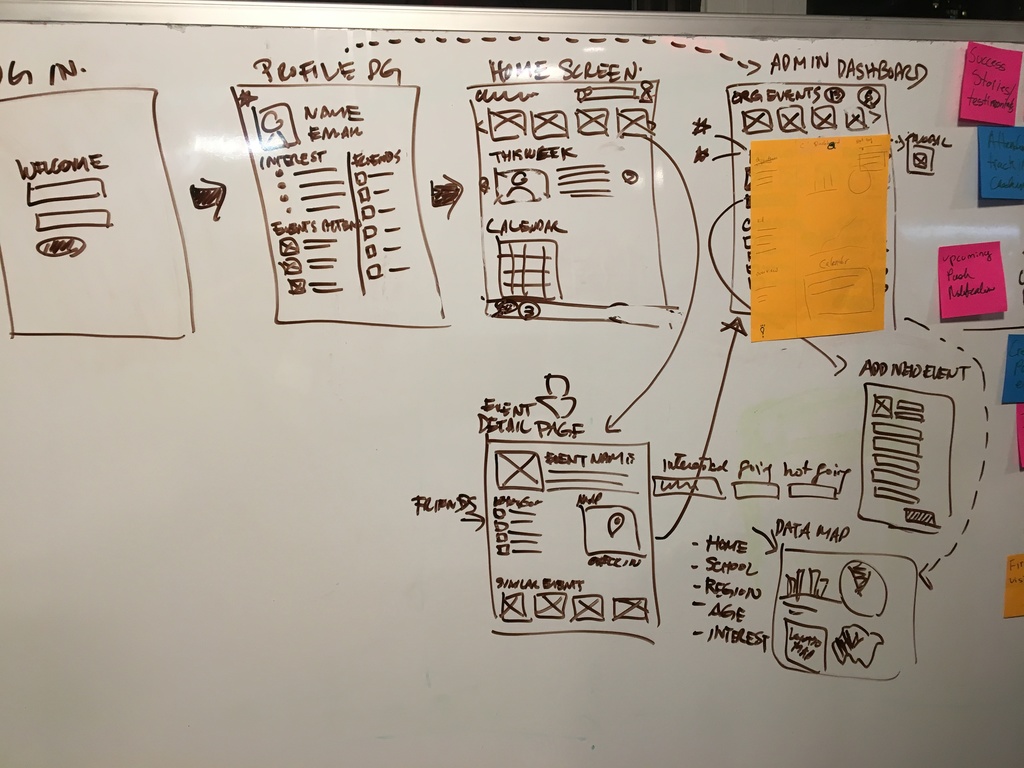 OG IN.
WELCOME
PROFILE PG
NAME
EMAIL
INTEREST
FRIENDS
HOME SCREEN.
THIS WEEK
CALENDAR
ADMIN DASHBOARD
ORG EVENTS
Calendar
Success
Stories/
testimonies
upcoming
Push
Notification
ADD NEW EVENT
EVENT
DETAIL PAGE
EVENT NAME
FRIENDS
MAP
CHECK IN
SIMILAR EVENT
Interested going not going
DATA MAP
- HOME
- SCHOOL
- REGION
- AGE
- INTEREST
MAP